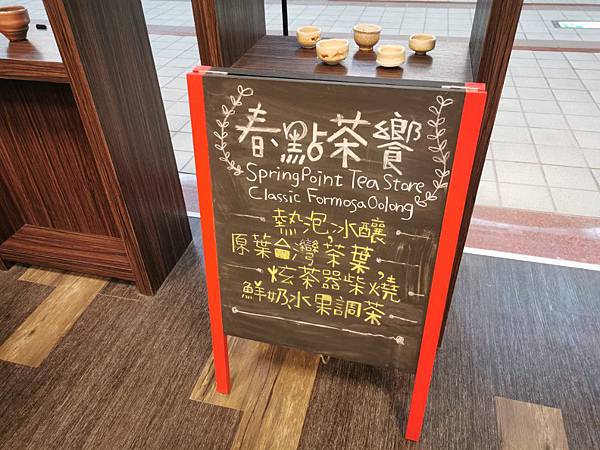 春點茶饗
SpringPoint Tea Store
Classic Formosa Oolong
熱泡冰釀
原葉台灣茶葉
炫茶器柴燒
鮮奶水果調茶